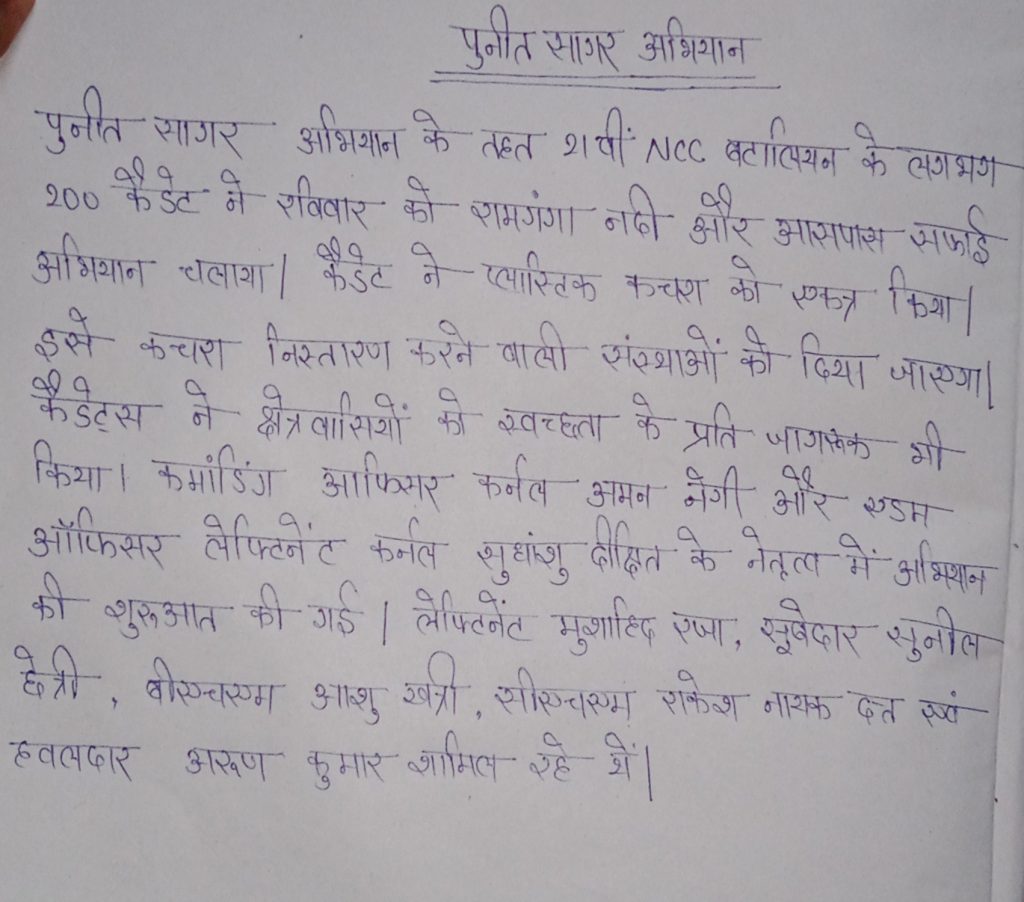 पुनीत सागर अभियान
पुनीत सागर अभियान के तहत 21वीं NCC बटालियन के लगभग
200 कैडेट ने रविवार को रामगंगा नदी और आसपास सफाई
अभियान चलाया। कैडेट ने प्लास्टिक कचरा को एकत्र किया।
इसे कचरा निस्तारण करने वाली संस्थाओं को दिया जाएगा।
कैडेट्स ने क्षेत्रवासियों को स्वच्छता के प्रति जागरूक भी
किया। कमांडिंग आफिसर कर्नल अमन नेगी और एडम
ऑफिसर लेफ्टिनेंट कर्नल सुधांशु दीक्षित के नेतृत्व में अभियान
की शुरुआत की गई। लेफ्टिनेंट मुशाहिद रजा, सूबेदार सुनील
छेत्री, बीएचएम आशु खत्री, सीएचएम राकेश नायक दत्त एवं
हवलदार अरूण कुमार शामिल रहे थें।